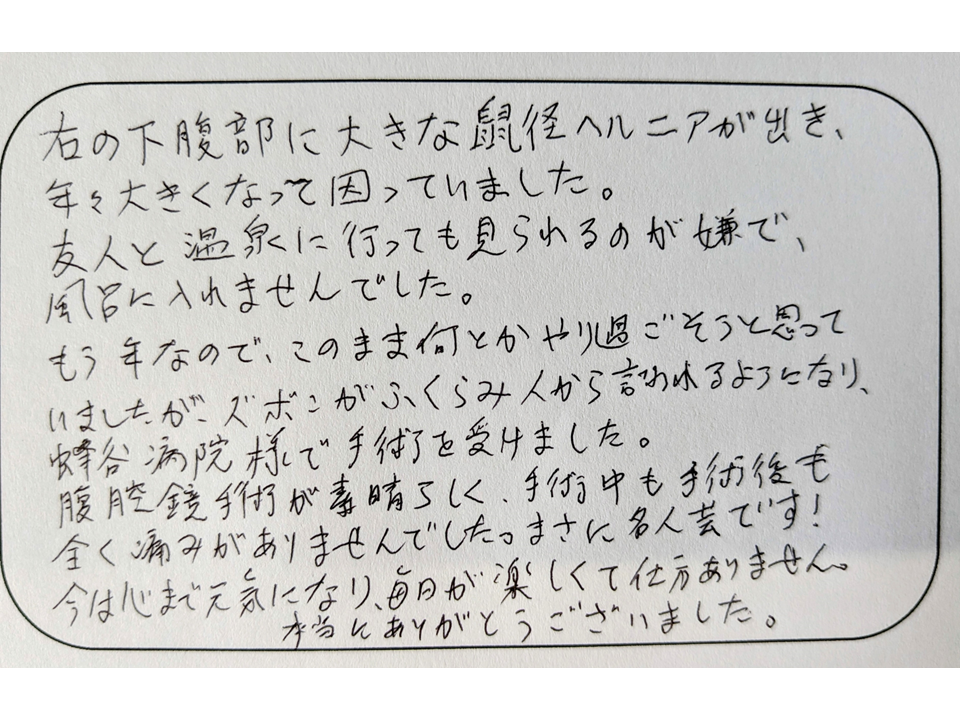 右の下腹部に大きな鼠径ヘルニアが出き、
年々大きくなって困っていました。
友人と温泉に行っても見られるのが嫌で、
風呂に入れませんでした。
もう年なので、このまま何とかやり過ごそうと思って
いましたが、ズボンがふくらみ人から言われるようになり、
蜂谷病院様で手術を受けました。
腹腔鏡手術が素晴らしく、手術中も手術後も
全く痛みがありませんでしたっまさに名人芸です!
今は心まで元気になり、毎日が楽しくて仕方ありません。
本当にありがとうございました。